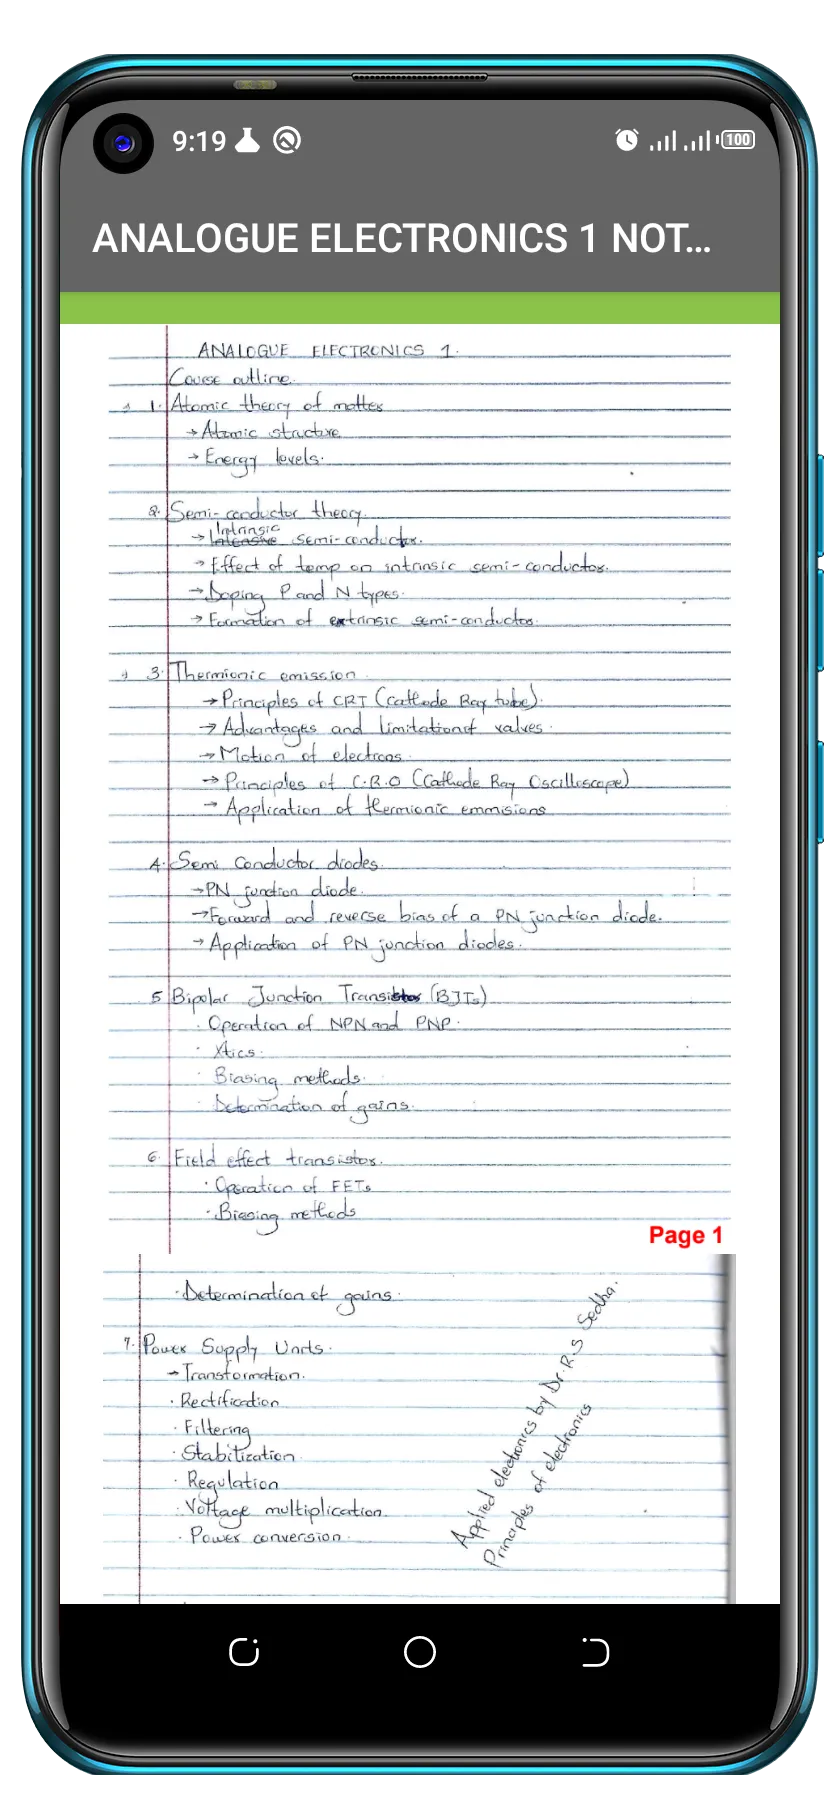 9:19
100
ANALOGUE ELECTRONICS 1 NOT...
ANALOGUE ELECTRONICS 1.
Course outline.
1. Atomic theory of matter
→ Atomic structure
→ Energy levels.
2. Semi-conductor theory.
Intrinsic
→ Intensive semi-conductor.
→ Effect of temp on intrinsic semi-conductor.
→ Doping P and N types.
→ Formation of extrinsic semi-conductor.
3. Thermionic emission.
→ Principles of CRT (Cathode Ray tube).
→ Advantages and limitation of valves.
→ Motion of electrons.
→ Principles of C.R.O (Cathode Ray Oscilloscope)
→ Application of thermionic emmisions
4. Semi Conductor diodes.
→ PN junction diode.
→ Forward and reverse bias of a PN junction diode.
→ Application of PN junction diodes.
5 Bipolar Junction Transistor (BJTs)
· Operation of NPN and PNP.
· Xtics.
· Biasing methods.
· Determination of gains.
6. Field effect transistor.
· Operation of FETs
· Biasing methods
Page 1
· Determination of gains.
7. Power Supply Units.
→ Transformation.
· Rectification
· Filtering
· Stabilization
· Regulation
· Voltage multiplication.
· Power conversion.
Applied electronics by Dr. R.S Sedha.
Principles of electronics